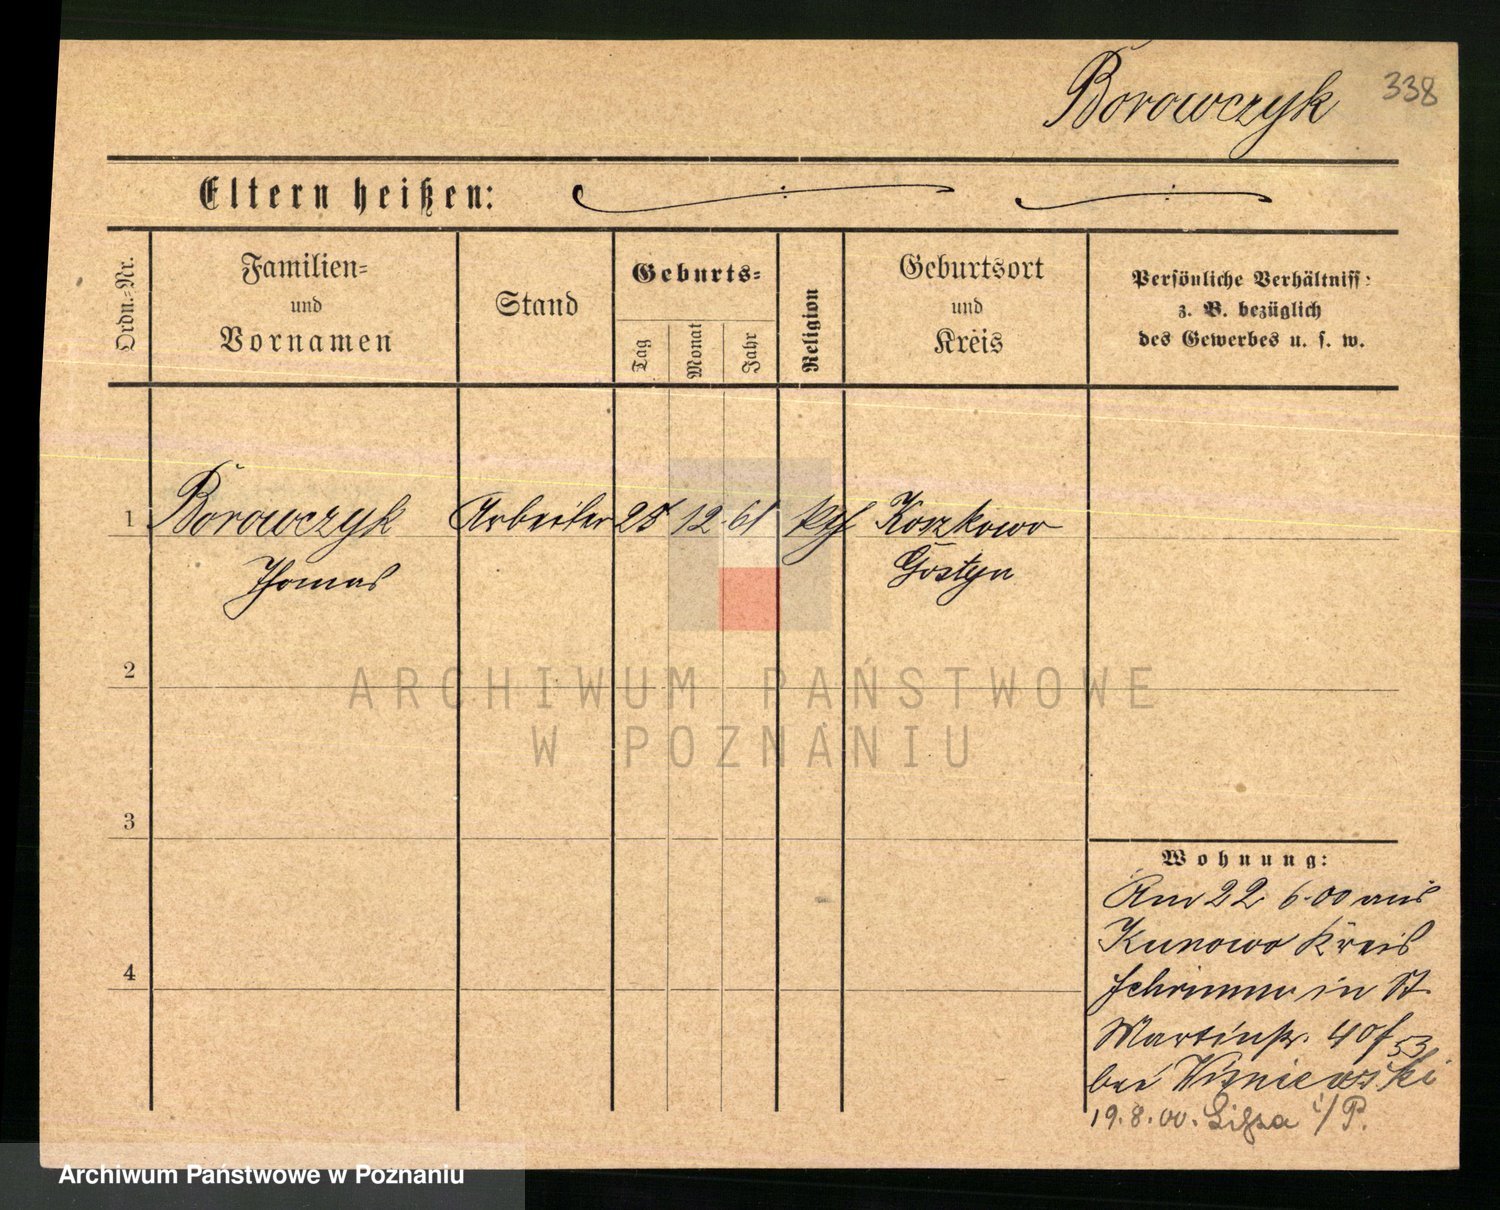 Borowczyk 338
Eltern heißen:
Ordn.-Nr.
Familien-
und
Vornamen
Stand
Geburts-
Tag
Monat
Jahr
Religion
Geburtsort
und
Kreis
Persönliche Verhältniss:
z. B. bezüglich
des Gewerbes u. s. w.
1 Borowczyk Arbeiter 25 12 61 Koszkowo
Thomas Gostyn
2
ARCHIWUM PAŃSTWOWE
W POZNANIU
3
4
Wohnung:
Am 22 6.00 aus
Kunowo Kreis
Schrimm in St
Martinstr. 40/53
bei Wisniewski
19.8.00. Lissa i/P.
Archiwum Państwowe w Poznaniu